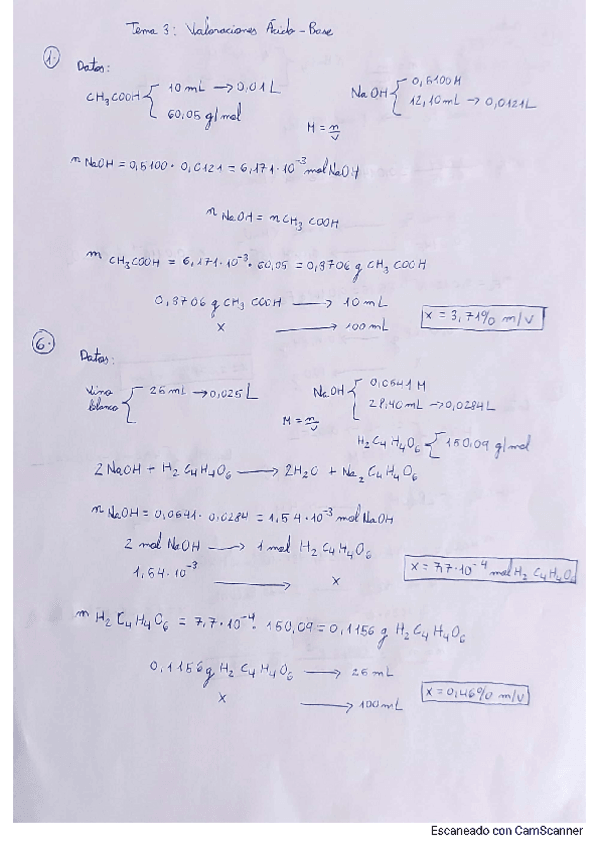 Tema 3: Valoraciones Ácido-Base
1. Datos:
CH3COOH { 10 mL → 0,01 L
60,05 g/mol
NaOH { 0,5100 M
12,10 mL → 0,0121 L
M = n/V
n NaOH = 0,5100 · 0,0121 = 6,171·10⁻³ mol NaOH
n NaOH = n CH3COOH
m CH3COOH = 6,171·10⁻³ · 60,05 = 0,3706 g CH3COOH
0,3706 g CH3COOH → 10 mL
x → 100 mL
x = 3,71% m/v
6. Datos:
Vino blanco { 25 mL → 0,025 L
NaOH { 0,0541 M
28,40 mL → 0,0284 L
M = n/V
H2C4H4O6 { 150,09 g/mol
2 NaOH + H2C4H4O6 → 2H2O + Na2C4H4O6
n NaOH = 0,0541 · 0,0284 = 1,54·10⁻³ mol NaOH
2 mol NaOH → 1 mol H2C4H4O6
1,54·10⁻³ → x
x = 7,7·10⁻⁴ mol H2C4H4O6
m H2C4H4O6 = 7,7·10⁻⁴ · 150,09 = 0,1156 g H2C4H4O6
0,1156 g H2C4H4O6 → 25 mL
x → 100 mL
x = 0,46% m/v
Escaneado con CamScanner